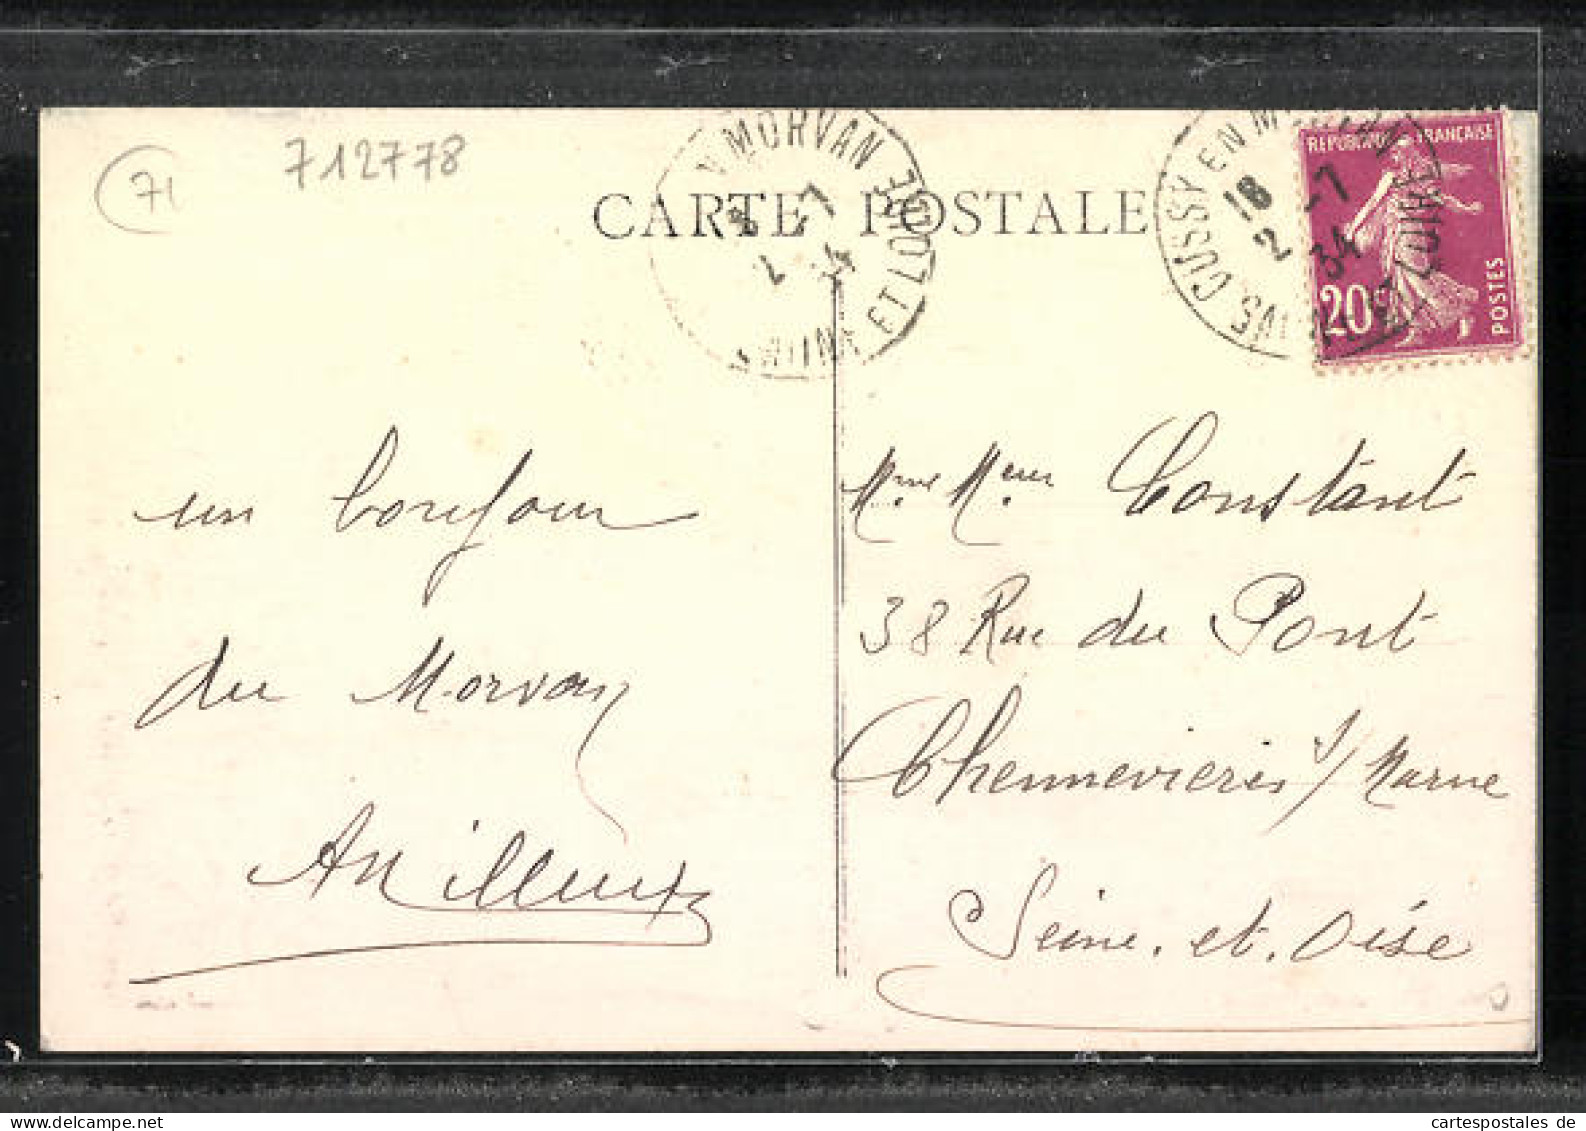 71
712778
CARTE POSTALE
MORVAN
SAÔNE ET LOIRE
CUSSY EN MORVAN
LOIRE
18
2 -7
34
REPUBLIQUE FRANÇAISE
20c
POSTES
un bonjour
du Morvan
Mme Meur Constant
38 Rue du Pont
Chennevieres s/ Marne
Seine. et. Oise
www.delcampe.net
cartespostales de